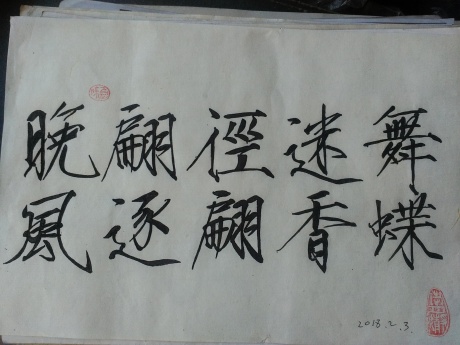 舞蝶
迷香
徑翩
翩逐
晚風
2018.2.3.